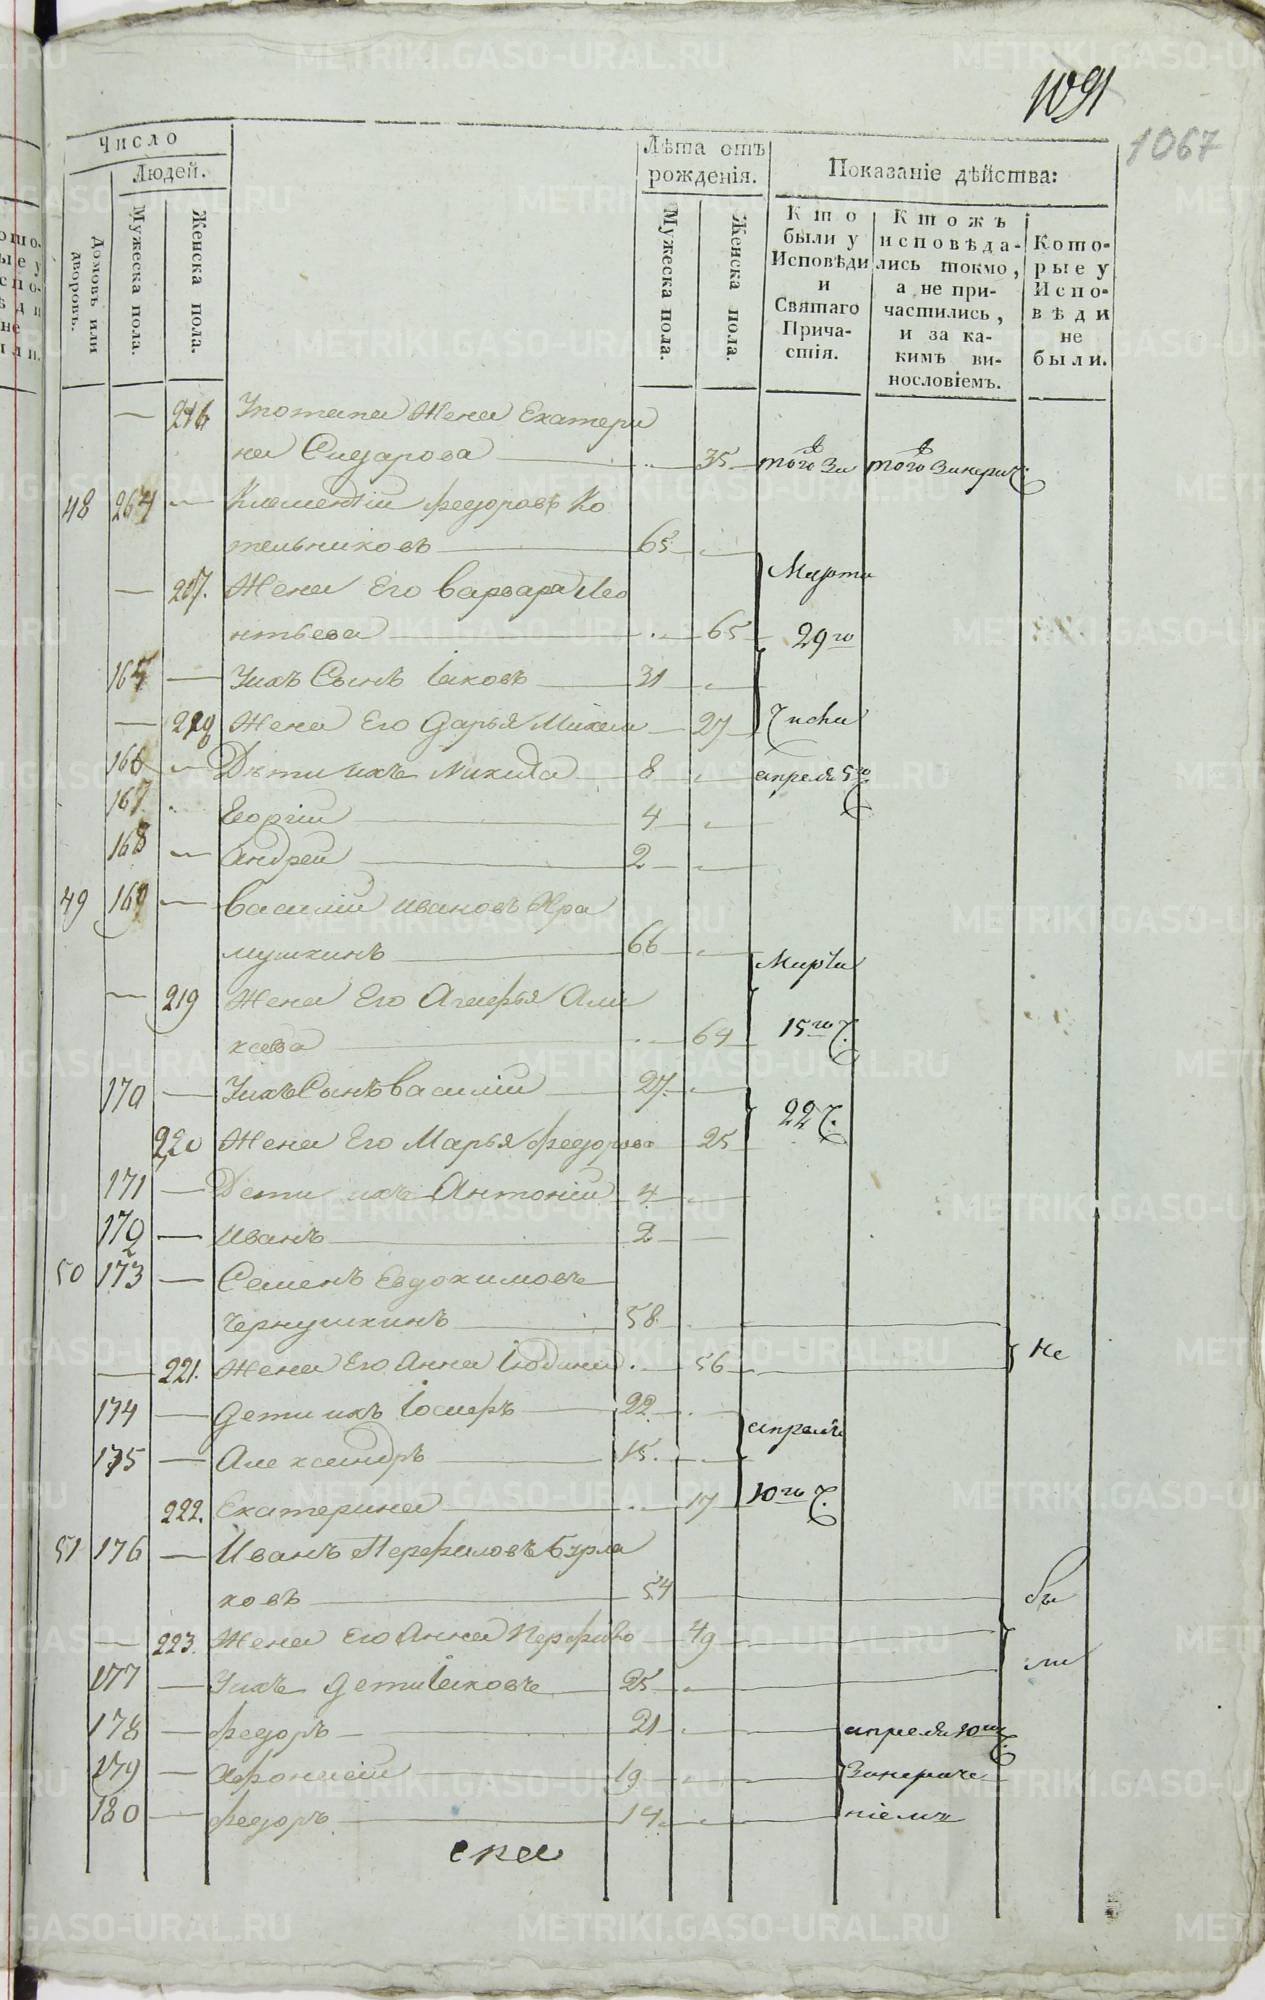 1091
1067
Число
Людей.
Лѣта отъ
рожденія.
Показаніе дѣйства:
Домовъ или дворовъ.
Мужеска пола.
Женска пола.
Мужеска пола.
Женска пола.
Кто были у Исповѣди и Святаго Причастія.
Ктожъ исповѣдались токмо, а не причастились, и за какимъ винословіемъ.
Которые у Исповѣди не были.
— 216 Употапа Жена Екатери
на Сидарова 35 того За того Занерач.
48 264 — Климентій федоровъ Ко
тельниковъ 65
— 217. Жена Его Варвара Лео
Марта
нтьева 65 29го
165 — Ихъ Сынъ Іаковъ 31
— 218 Жена Его Дарья Михаи 27 Числа
166 — Дѣти ихъ Никита 8 апреля 5го
167 Георгій 4
168 — Андрей 2
49 169 — Василій Ивановъ Хра
мушкинъ 66
Марта
— 219 Жена Его Агафья Але
ксева 64 15го Ч.
170 — Ихъ Сынъ Василій 27.
22 Ч.
220 Жена Его Марья федорова 25
171 — Дети ихъ Антоній 4
172 — Иванъ 2
50 173 — Семенъ Евдокимовъ
Чернушкинъ 58
— 221. Жена Его Анна Іюдина 56 Не
174 — Дети ихъ Іосифъ 22
апреля
175 — Александръ 15.
222. Екатерина 17 10го Ч.
51 176 — Иванъ Перфиловъ Бурла
ковъ 54 бы
— 223. Жена Его Анна Перфиво 49
177 — Ихъ дети Іаковъ 25 ли
178 — федоръ 21 апреля 10го Ч.
179 — Афонасій 19 Занераче
180 — федоръ 14 ніемъ
METRIKI.GASO-URAL.RU